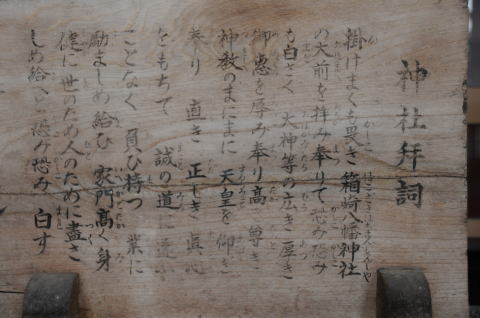 神社拝詞
掛けまくも畏き 箱崎八幡神社
の大前を拝み奉りて 恐み恐み
も白さく 大神等の広き厚き
御恵を辱み奉り 高き尊き
神教のまにまに 天皇を仰ぎ
奉り 直き正しき真心
をもちて 誠の道に違ふ
ことなく 負ひ持つ業に
励ましめ給ひ 家門高く身
健に 世のため人のために盡さ
しめ給へと 恐み恐み 白す